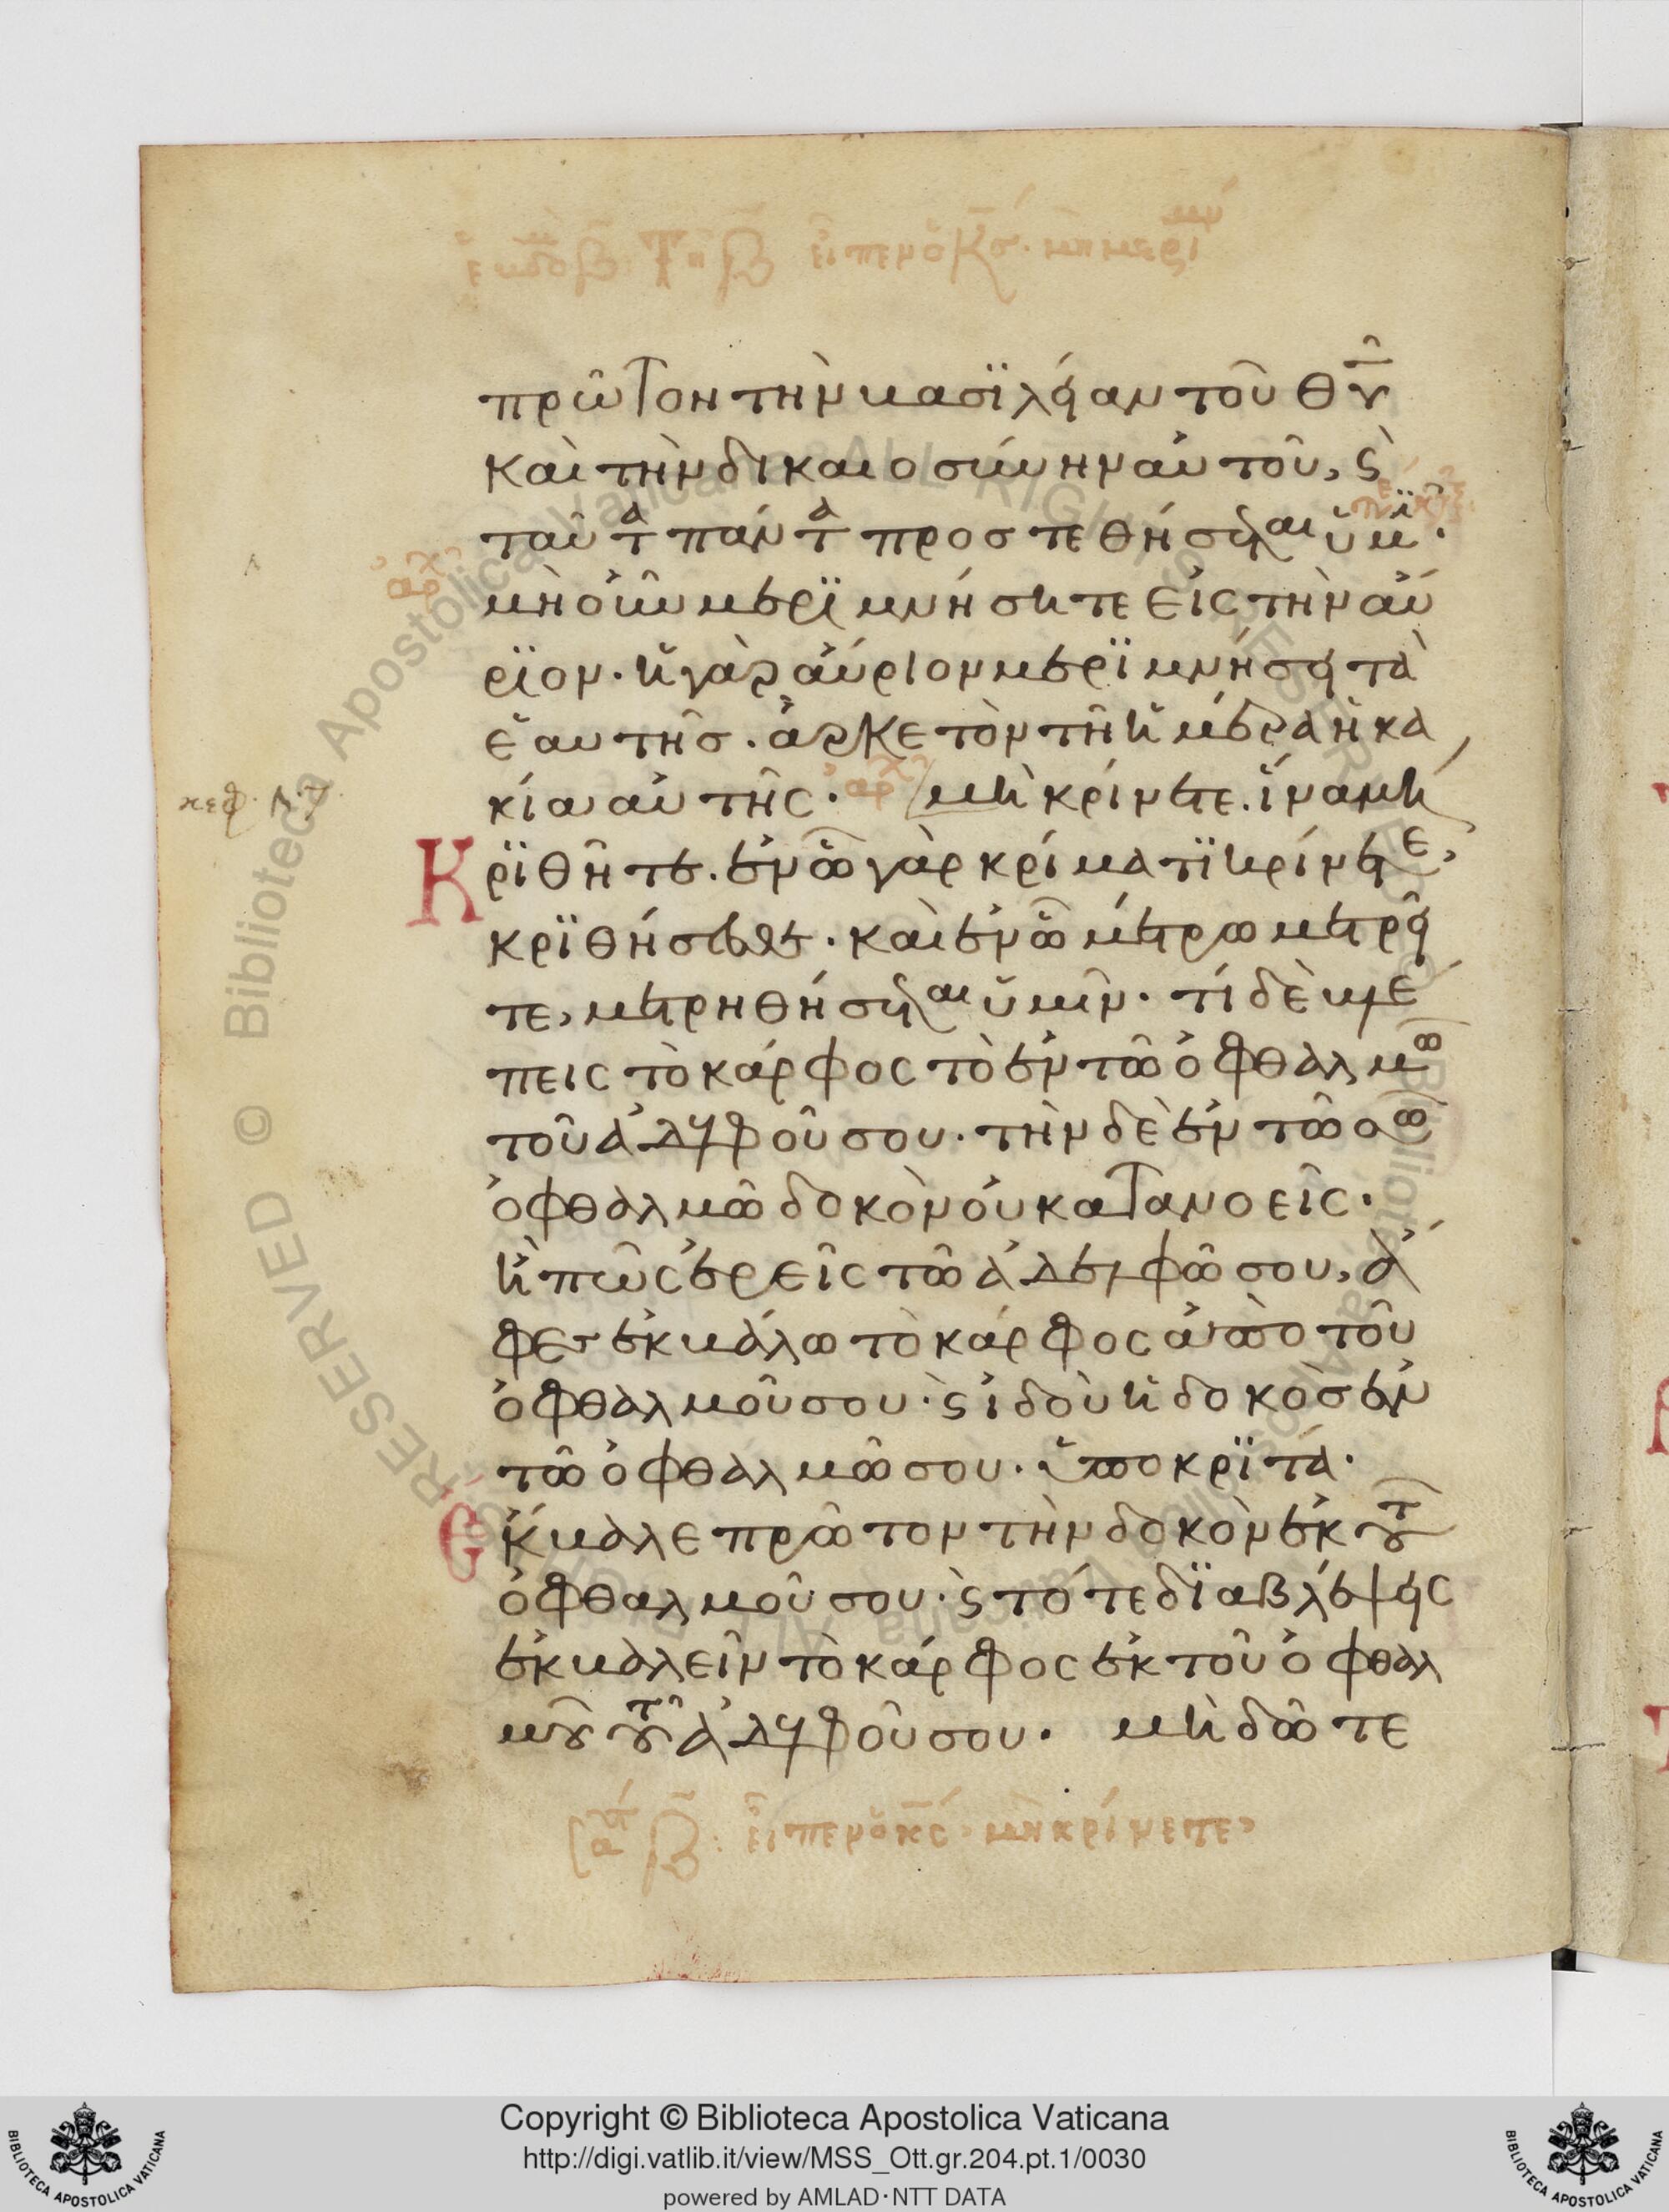 πρῶτον τὴν βασϊλείαν τοῦ θῦ
καὶ τὴν δικαιοσύνην αὐτοῦ, ϛ
ταῦτα πάντα προστεθήσεται ὑμῖ·
μὴ οὖν μερϊμνήσητε εἰς τὴν αὔ
ρϊον· ἡ γὰρ αὔριον μερϊμνήσει τὰ
ἑαυτῆσ· ἀρκετὸν τῆ ἡμέρα ἡ κα
κία αὐτῆς· ἀρχ μὴ κρίνετε. ἵνα μὴ
κρϊθῆτε. ἐν ὧ γὰρ κρίματϊ κρίνετε,
κρϊθήσεσθε· καὶ ἐν ὧ μέτρω μετρεῖ
τε, μετρηθήσεται ὑμῖν· τί δὲ βλέ
πεις τὸ κάρφος τὸ ἐν τῶ ὀφθαλμῶ
τοῦ ἀδελφοῦ σου· τὴν δὲ ἐν τῶ σῶ
ὀφθαλμῶ δοκὸν οὐ κατανοεῖς·
ἢ πῶς ἐρεῖς τῶ ἀδελφῶ σου, ἄ
φες ἐκβάλω τὸ κάρφος ἀπὸ τοῦ
ὀφθαλμοῦ σου· ϛ ἰδοὺ ἡ δοκὸσ ἐν
τῶ ὀφθαλμῶ σου· ὑποκρϊτά·
ἔκβαλε πρῶτον τὴν δοκὸν ἐκ τοῦ
ὀφθαλμοῦ σου· ϛ τότε δϊαβλέψεις
ἐκβαλεῖν τὸ κάρφος ἐκ τοῦ ὀφθαλ
μοῦ τοῦ ἀδελφοῦ σου· μὴ δῶτε
εἶπεν ὁ κς· μὴ κρίνετε,
© Biblioteca Apostolica Vaticana ALL RIGHTS RESERVED
Copyright © Biblioteca Apostolica Vaticana
http://digi.vatlib.it/view/MSS_Ott.gr.204.pt.1/0030
powered by AMLAD·NTT DATA
BIBLIOTECA APOSTOLICA VATICANA
BIBLIOTECA APOSTOLICA VATICANA